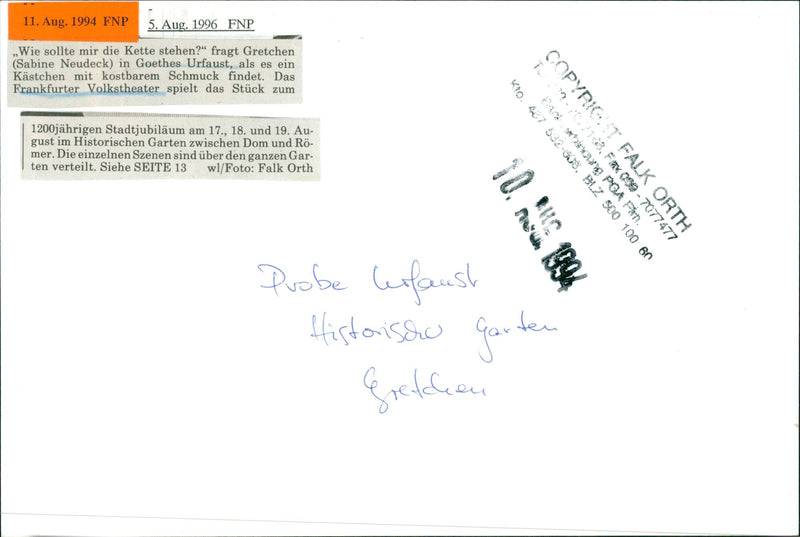 11. Aug. 1994 FNP
5. Aug. 1996 FNP
„Wie sollte mir die Kette stehen?“ fragt Gretchen
(Sabine Neudeck) in Goethes Urfaust, als es ein
Kästchen mit kostbarem Schmuck findet. Das
Frankfurter Volkstheater spielt das Stück zum
1200jährigen Stadtjubiläum am 17., 18. und 19. Au-
gust im Historischen Garten zwischen Dom und Rö-
mer. Die einzelnen Szenen sind über den ganzen Gar-
ten verteilt. Siehe SEITE 13 wl/Foto: Falk Orth
COPYRIGHT FALK ORTH
Fax 069 - 7077477
PGA Ffm.
BLZ 500 100 60
10. AUG. 1994
Probe Urfaust
Historischer Garten
Gretchen